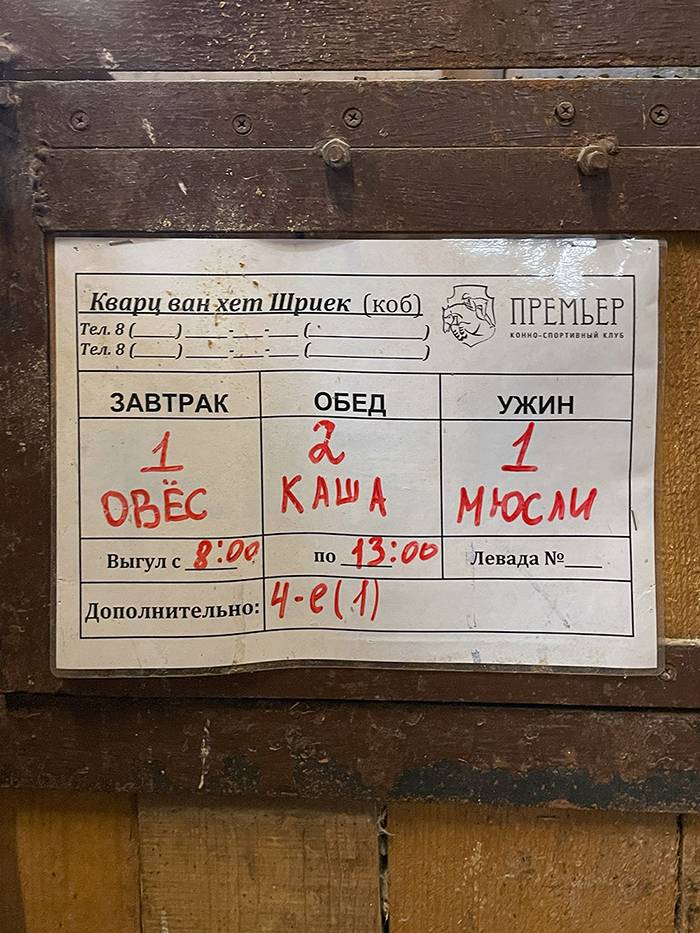 Кварц ван хет Шриек (коб)
Тел. 8 (____) ____-__-__ (____________)
Тел. 8 (____) ____-__-__ (____________)
ПРЕМЬЕР
КОННО-СПОРТИВНЫЙ КЛУБ
ЗАВТРАК ОБЕД УЖИН
1 2 1
ОВЁС КАША МЮСЛИ
Выгул с 8:00 по 13:00 Левада №____
Дополнительно: 4-е(1)